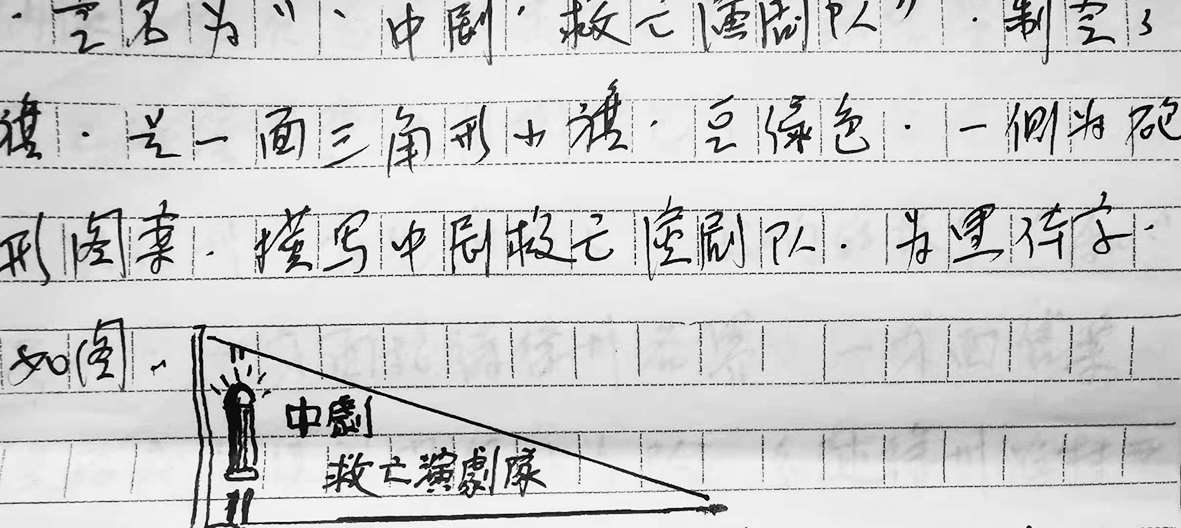 定名为“·中剧·救亡演剧队”·制定了
旗·是一面三角形小旗·豆绿色·一侧为砲
形图案·横写中剧救亡演剧队·为黑体字·
如图··
中劇
救亡演劇隊